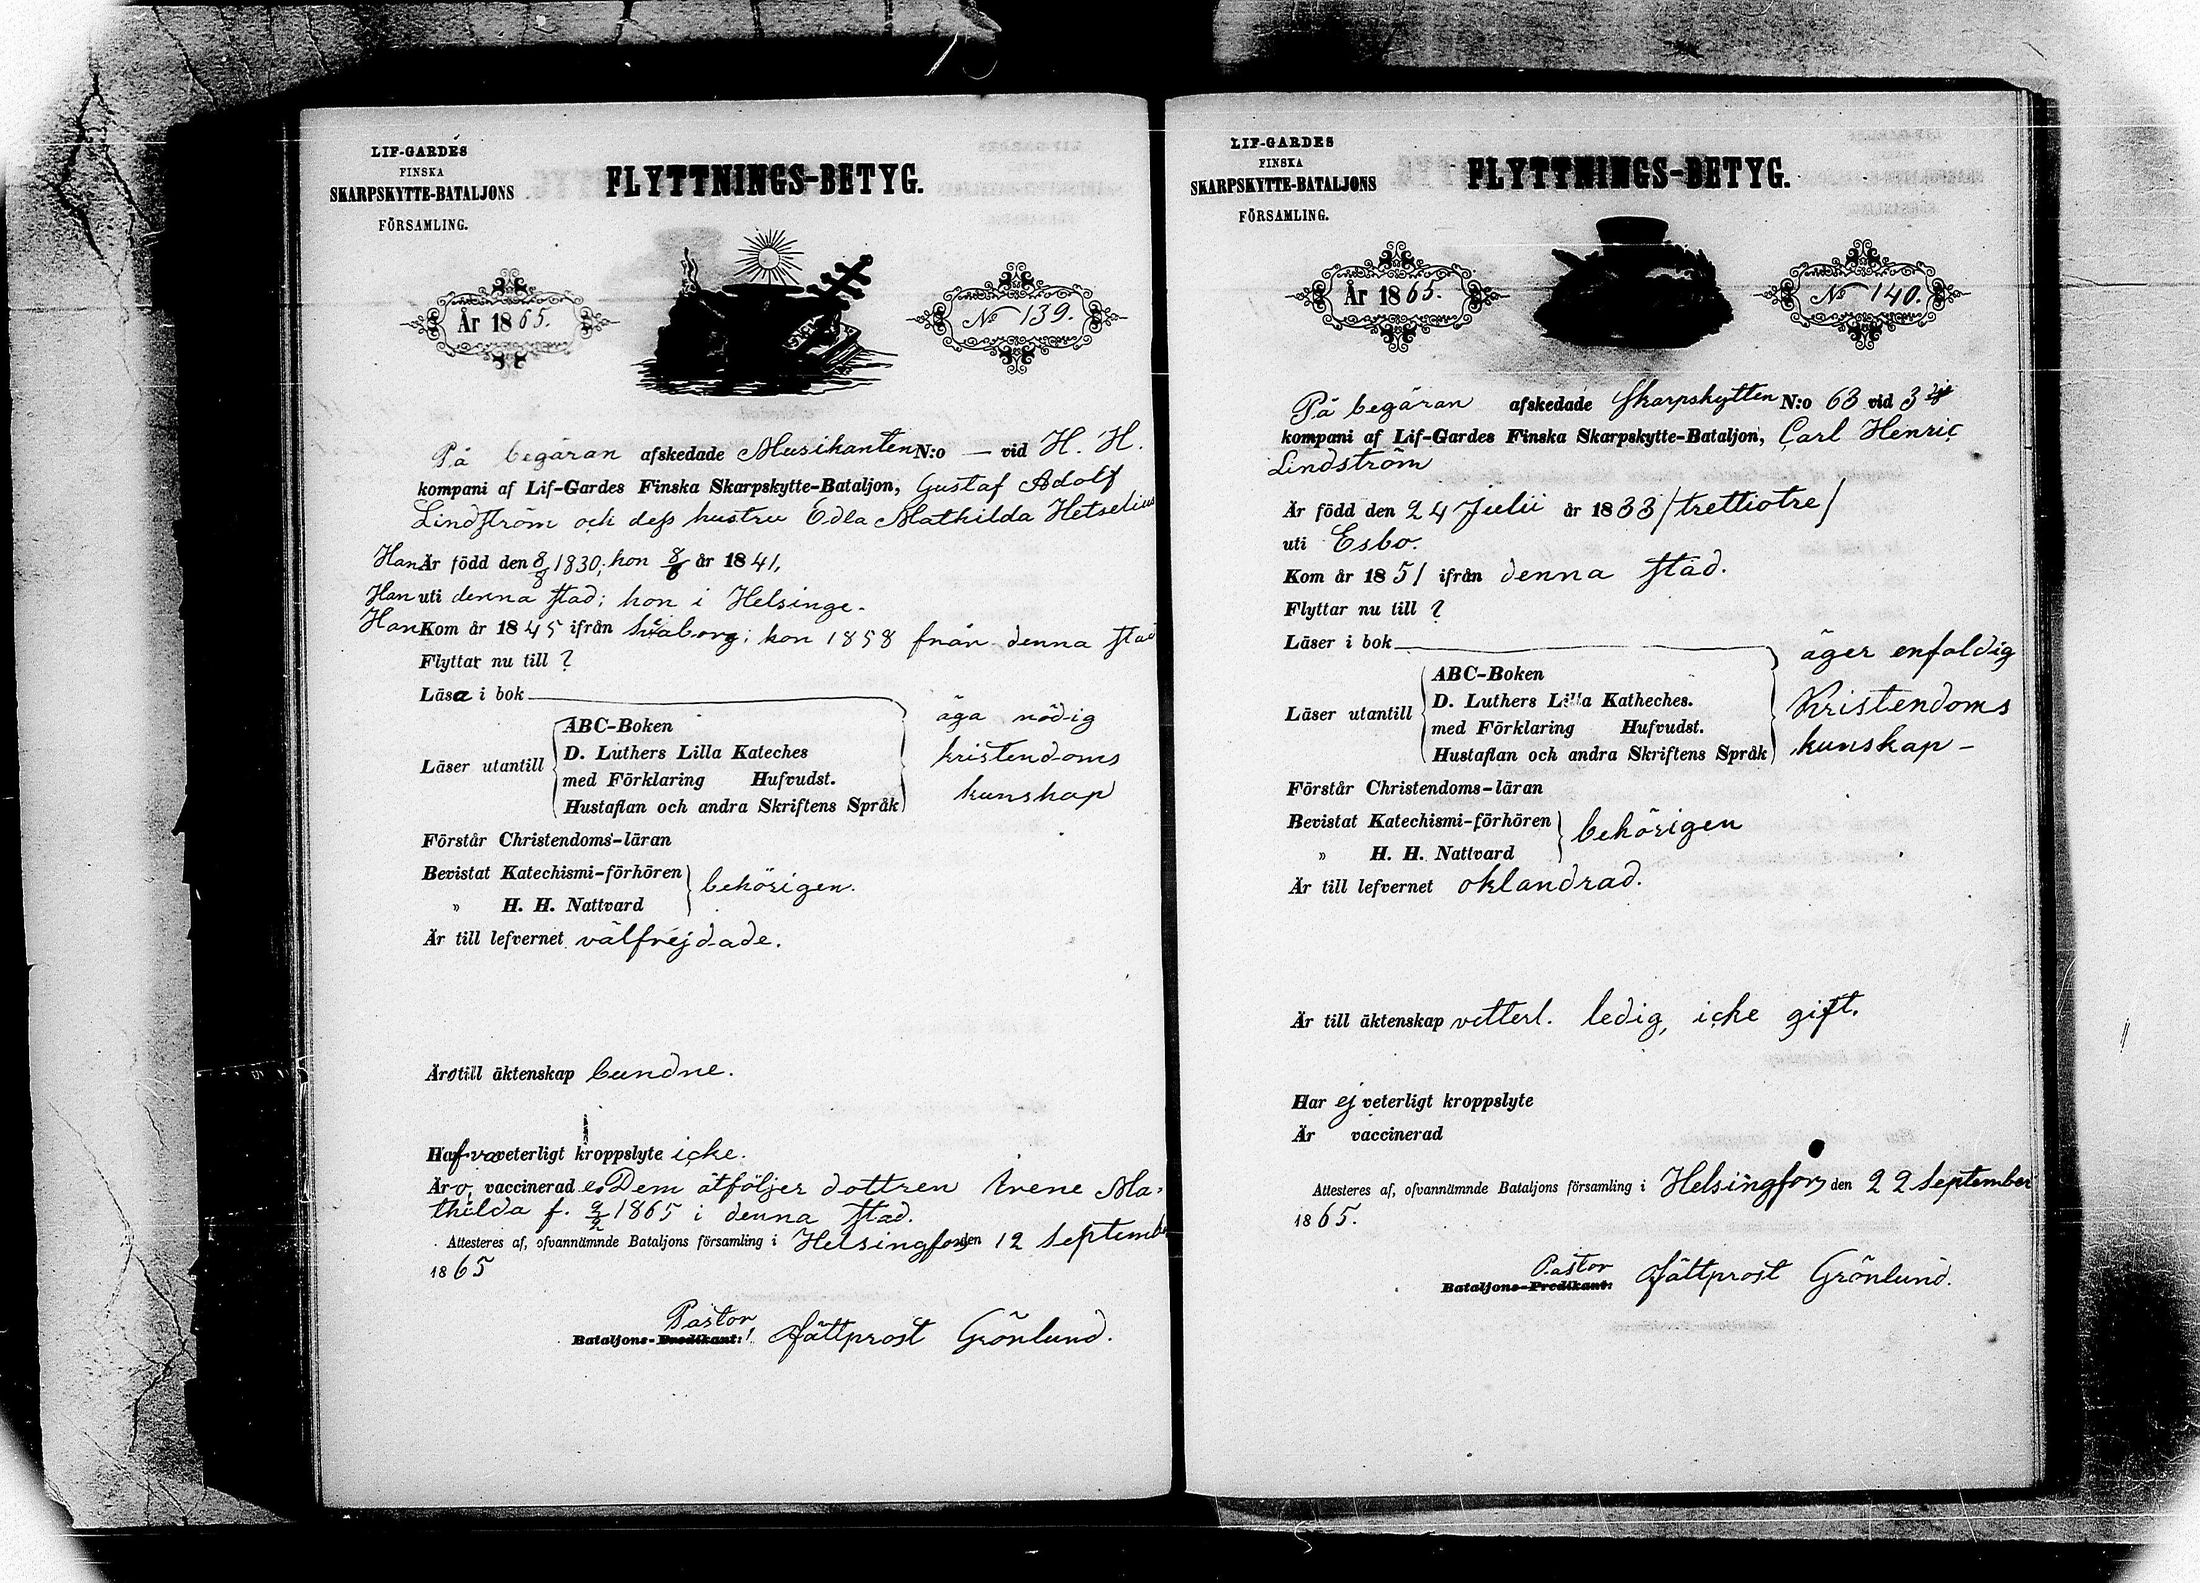 LIF-GARDES
FINSKA
SKARPSKYTTE-BATALJONS
FÖRSAMLING.
FLYTTNINGS-BETYG.
År 1865.
No 139.
På begäran afskedade Musikanten N:o — vid H. H.
kompani af Lif-Gardes Finska Skarpskytte-Bataljon, Gustaf Adolf
Lindström och dess hustru Edla Mathilda Hetselius
Han Är född den 8/8 1830; hon 8/6 år 1841.
Han uti denna stad; hon i Helsinge.
Han Kom år 1845 ifrån Sveaborg; hon 1858 från denna stad
Flyttar nu till ?
Läsa i bok
ABC-Boken
Läser utantill
D. Luthers Lilla Kateches
med Förklaring Hufvudst.
Hustaflan och andra Skriftens Språk
äga nödig
kristendoms
kunskap
Förstår Christendoms-läran
Bevistat Katechismi-förhören
» H. H. Nattvard
behörigen.
Är till lefvernet välfrejdade.
Äro till äktenskap bundne.
Hafva veterligt kroppslyte icke.
Äro, vaccinerade. Dem åtföljer dottren Irene Ma-
thilda f. 9/2 1865 i denna stad.
Attesteres af, ofvannämnde Bataljons församling i Helsingfors den 12 September
1865
Pastor
Bataljons-Predikant: Fältprost Grönlund.
LIF-GARDES
FINSKA
SKARPSKYTTE-BATALJONS
FÖRSAMLING.
FLYTTNINGS-BETYG.
År 1865.
No 140.
På begäran afskedade Skarpskytten N:o 63 vid 3dje
kompani af Lif-Gardes Finska Skarpskytte-Bataljon, Carl Henric
Lindström
Är född den 24 Julii år 1833 /trettiotre/
uti Esbo.
Kom år 1851 ifrån denna stad.
Flyttar nu till ?
Läser i bok
ABC-Boken
Läser utantill
D. Luthers Lilla Katheches.
med Förklaring Hufvudst.
Hustaflan och andra Skriftens Språk
äger enfaldig
Kristendoms
kunskap –
Förstår Christendoms-läran
Bevistat Katechismi-förhören
» H. H. Nattvard
behörigen
Är till lefvernet oklandrad.
Är till äktenskap vetterl. ledig, icke gift.
Har ej veterligt kroppslyte
Är vaccinerad
Attesteres af, ofvannämnde Bataljons församling i Helsingfors den 22 September
1865.
Pastor
Bataljons-Predikant: Fältprost Grönlund.